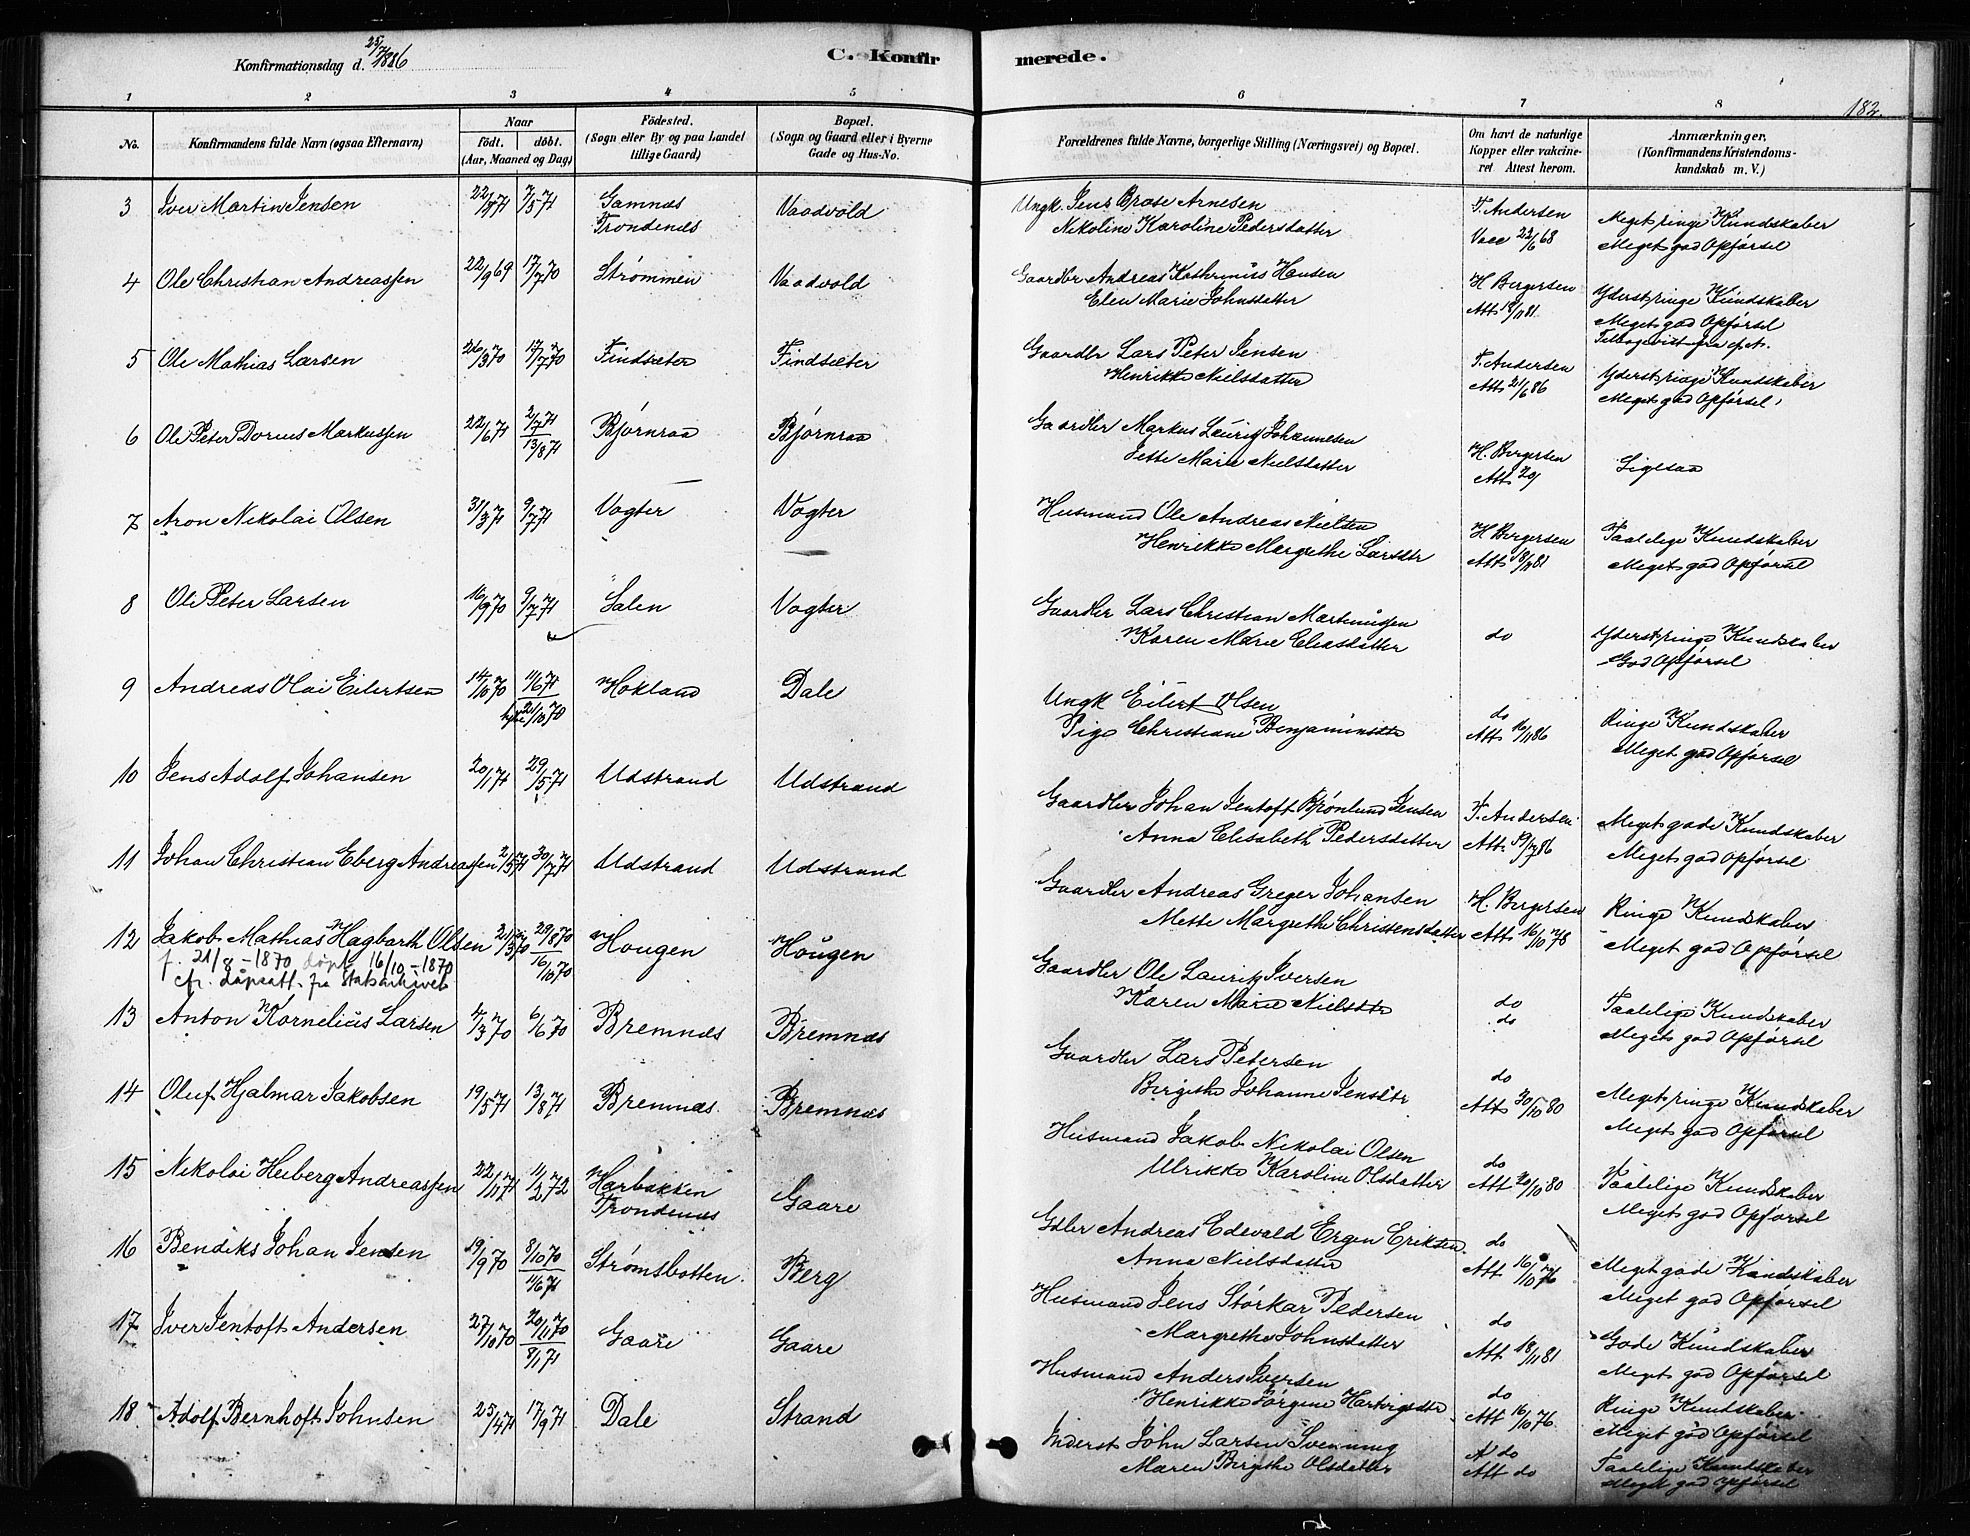 Konfirmationsdag d. 25/7 1886
C. Konfirmerede.
182.
1 2 3 4 5 6 7 8
No.
Konfirmandens fulde Navn (ogsaa Efternavn)
Naar
født. døbt.
(Aar, Maaned og Dag)
Fødested.
(Sogn eller By og paa Landet
tillige Gaard)
Bopæl.
(Sogn og Gaard eller i Byerne
Gade og Hus-No.
Forældrenes fulde Navne, borgerlige Stilling (Næringsvei) og Bopæl.
Om havt de naturlige
Kopper eller vakcine-
ret Attest herom.
Anmærkninger.
(Konfirmandens Kristendoms-
kundskab m. V.)
3 Iver Martin Jensen 22/3 71 7/5 71 Gamnæs Vaadvold Ungk. Jens Brose Arnesen T. Andersen Meget ringe Kundskaber
Trondenæs Nikoline Karoline Pedersdatter Vacc 22/6 68 Meget god Opførsel
4 Ole Christian Andreassen 22/9 69 17/7 70 Strømmen Vaadvold Gaardbr Andreas Kathrinus Hansen H Bergersen Yderst ringe Kundskaber
Elen Marie Johnsdatter Att 18/11 81 Meget god Opførsel
Tilbagevist fra f. A.
5 Ole Mathias Larsen 26/3 70 17/7 70 Findsæter Findsæter Gaardbr Lars Peter Jensen T. Andersen Yderst ringe Kundskaber
Henrikke Nielsdatter Att 21/6 86 Meget god Opførsel
6 Ole Peter Dorius Markussen 22/6 71 2/7 71 Bjørnraa Bjørnraa Gaardbr Markus Lauritz Johannesen H. Bergersen Ligesaa
13/8 71 Jette Marie Nielsdatter Att
7 Aron Nikolai Olsen 31/3 71 9/7 71 Vogter Vogter Husmand Ole Andreas Nielsen H Bergersen Taalelige Kundskaber
Henrikke Margrethe Larsdtr Att 18/11 81 Meget god Opførsel
8 Ole Peter Larsen 16/9 70 9/7 71 Salen Vogter Gaardbr Lars Christian Martinussen do Yderst ringe Kundskaber
Karen Marie Eliasdatter God Opførsel
9 Andreas Olai Eilertsen 14/10 70 11/6 71 Hokland Dale Ungk Eilert Olsen do Ringe Kundskaber
21/10 70 Pige Christiane Benjaminsdtr Att 16/11 86 Meget god Opførsel
10 Jens Adolf Johansen 20/1 71 29/5 71 Udstrand Udstrand Gaardbr Johan Jentoft Brønlund Jensen T. Andersen Meget gode Kundskaber
Anna Elisabeth Pedersdatter Att. 19/7 86 Meget god Opførsel
11 Johan Christian Eberg Andreassen 2/5 71 30/7 71 Udstrand Udstrand Gaardbr Andreas Greger Johansen H. Bergersen Ringe Kundskaber
Mette Margrethe Christensdatter Att 16/10 78 Meget god Opførsel
12 Jakob Mathias Hagbarth Olsen 21/3 70 29/8 70 Hougen Hougen Gaardbr Ole Lauritz Iversen do Taalelige Kundskaber
f. 21/8 - 1870 døpt 16/10 - 1870 16/10 70 Karen Marie Nielsdtr do Meget god Opførsel
cfr. dåpsatt. fra Statsarkivet
13 Anton Kornelius Larsen 4/3 70 6/6 70 Bremnæs Bremnæs Gaardbr Lars Petersen do Meget ringe Kundskaber
Bergithe Johanne Jensdtr Att 30/10 80 Meget god Opførsel
14 Oluf Hjalmar Jakobsen 19/5 71 13/8 71 Bremnæs Bremnæs Husmand Jakob Nikolai Olsen do Taalelige Kundskaber
Ulrikke Karoline Olsdatter Att 20/10 80 Meget god Opførsel
15 Nikolai Heiberg Andreassen 22/11 71 11/2 72 Harbakken Gaare Gdbr Andreas Edevald Ergen Eriksen do Meget gode Kundskaber
Trondenæs Anna Nielsdatter Att 16/10 76 Meget god Opførsel
16 Bendiks Johan Jensen 19/9 70 8/10 70 Strømsbotten Berg Husmand Jens Storkar Pedersen do Gode Kundskaber
11/6 71 Margrethe Johnsdatter Att 18/11 81 Meget god Opførsel
17 Iver Jentoft Andersen 27/10 70 20/11 70 Gaare Gaare Husmand Anders Iversen do Ringe Kundskaber
8/1 71 Henrikke Jørgine Hartvigsdtr Att 16/10 76 Meget god Opførsel
18 Adolf Bernhoft Johnsen 25/4 71 17/9 71 Dale Strand Inderst John Larsen Svenning do Taalelige Kundskaber
Maren Bergithe Olsdatter Att do Meget god Opførsel